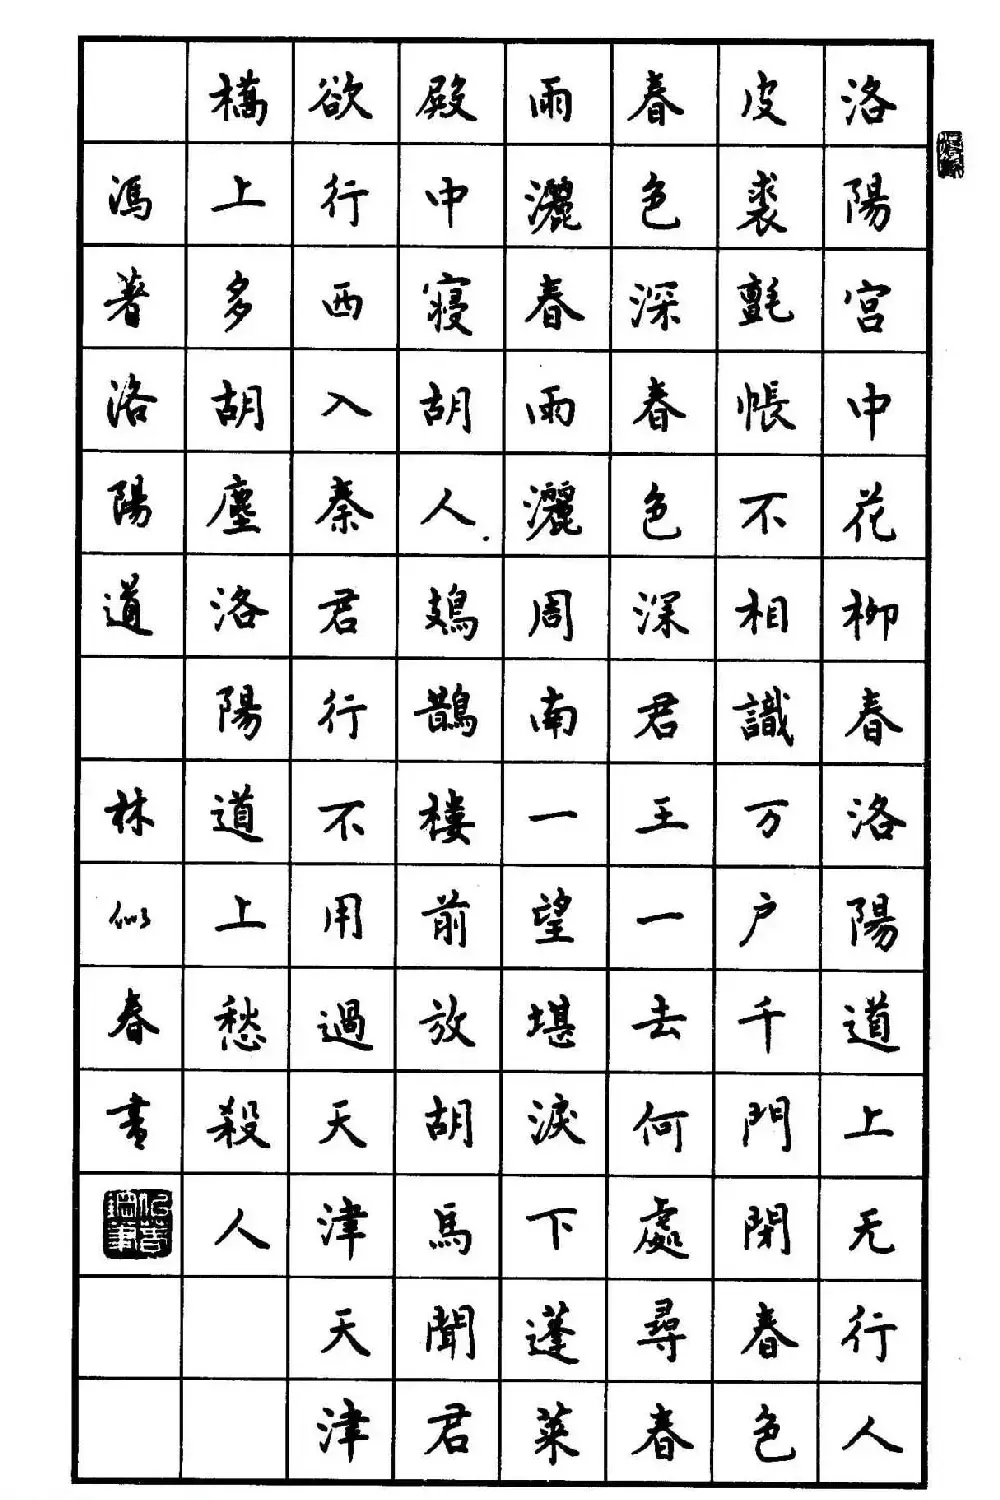 洛陽宮中花柳春洛陽道上无行人
皮裘氈帳不相識万户千門閉春色
春色深春色深君王一去何處尋春
雨灑春雨灑周南一望堪淚下蓬萊
殿中寢胡人鳷鵲樓前放胡馬聞君
欲行西入秦君行不用過天津天津
橋上多胡塵洛陽道上愁殺人
馮著洛陽道 林似春書